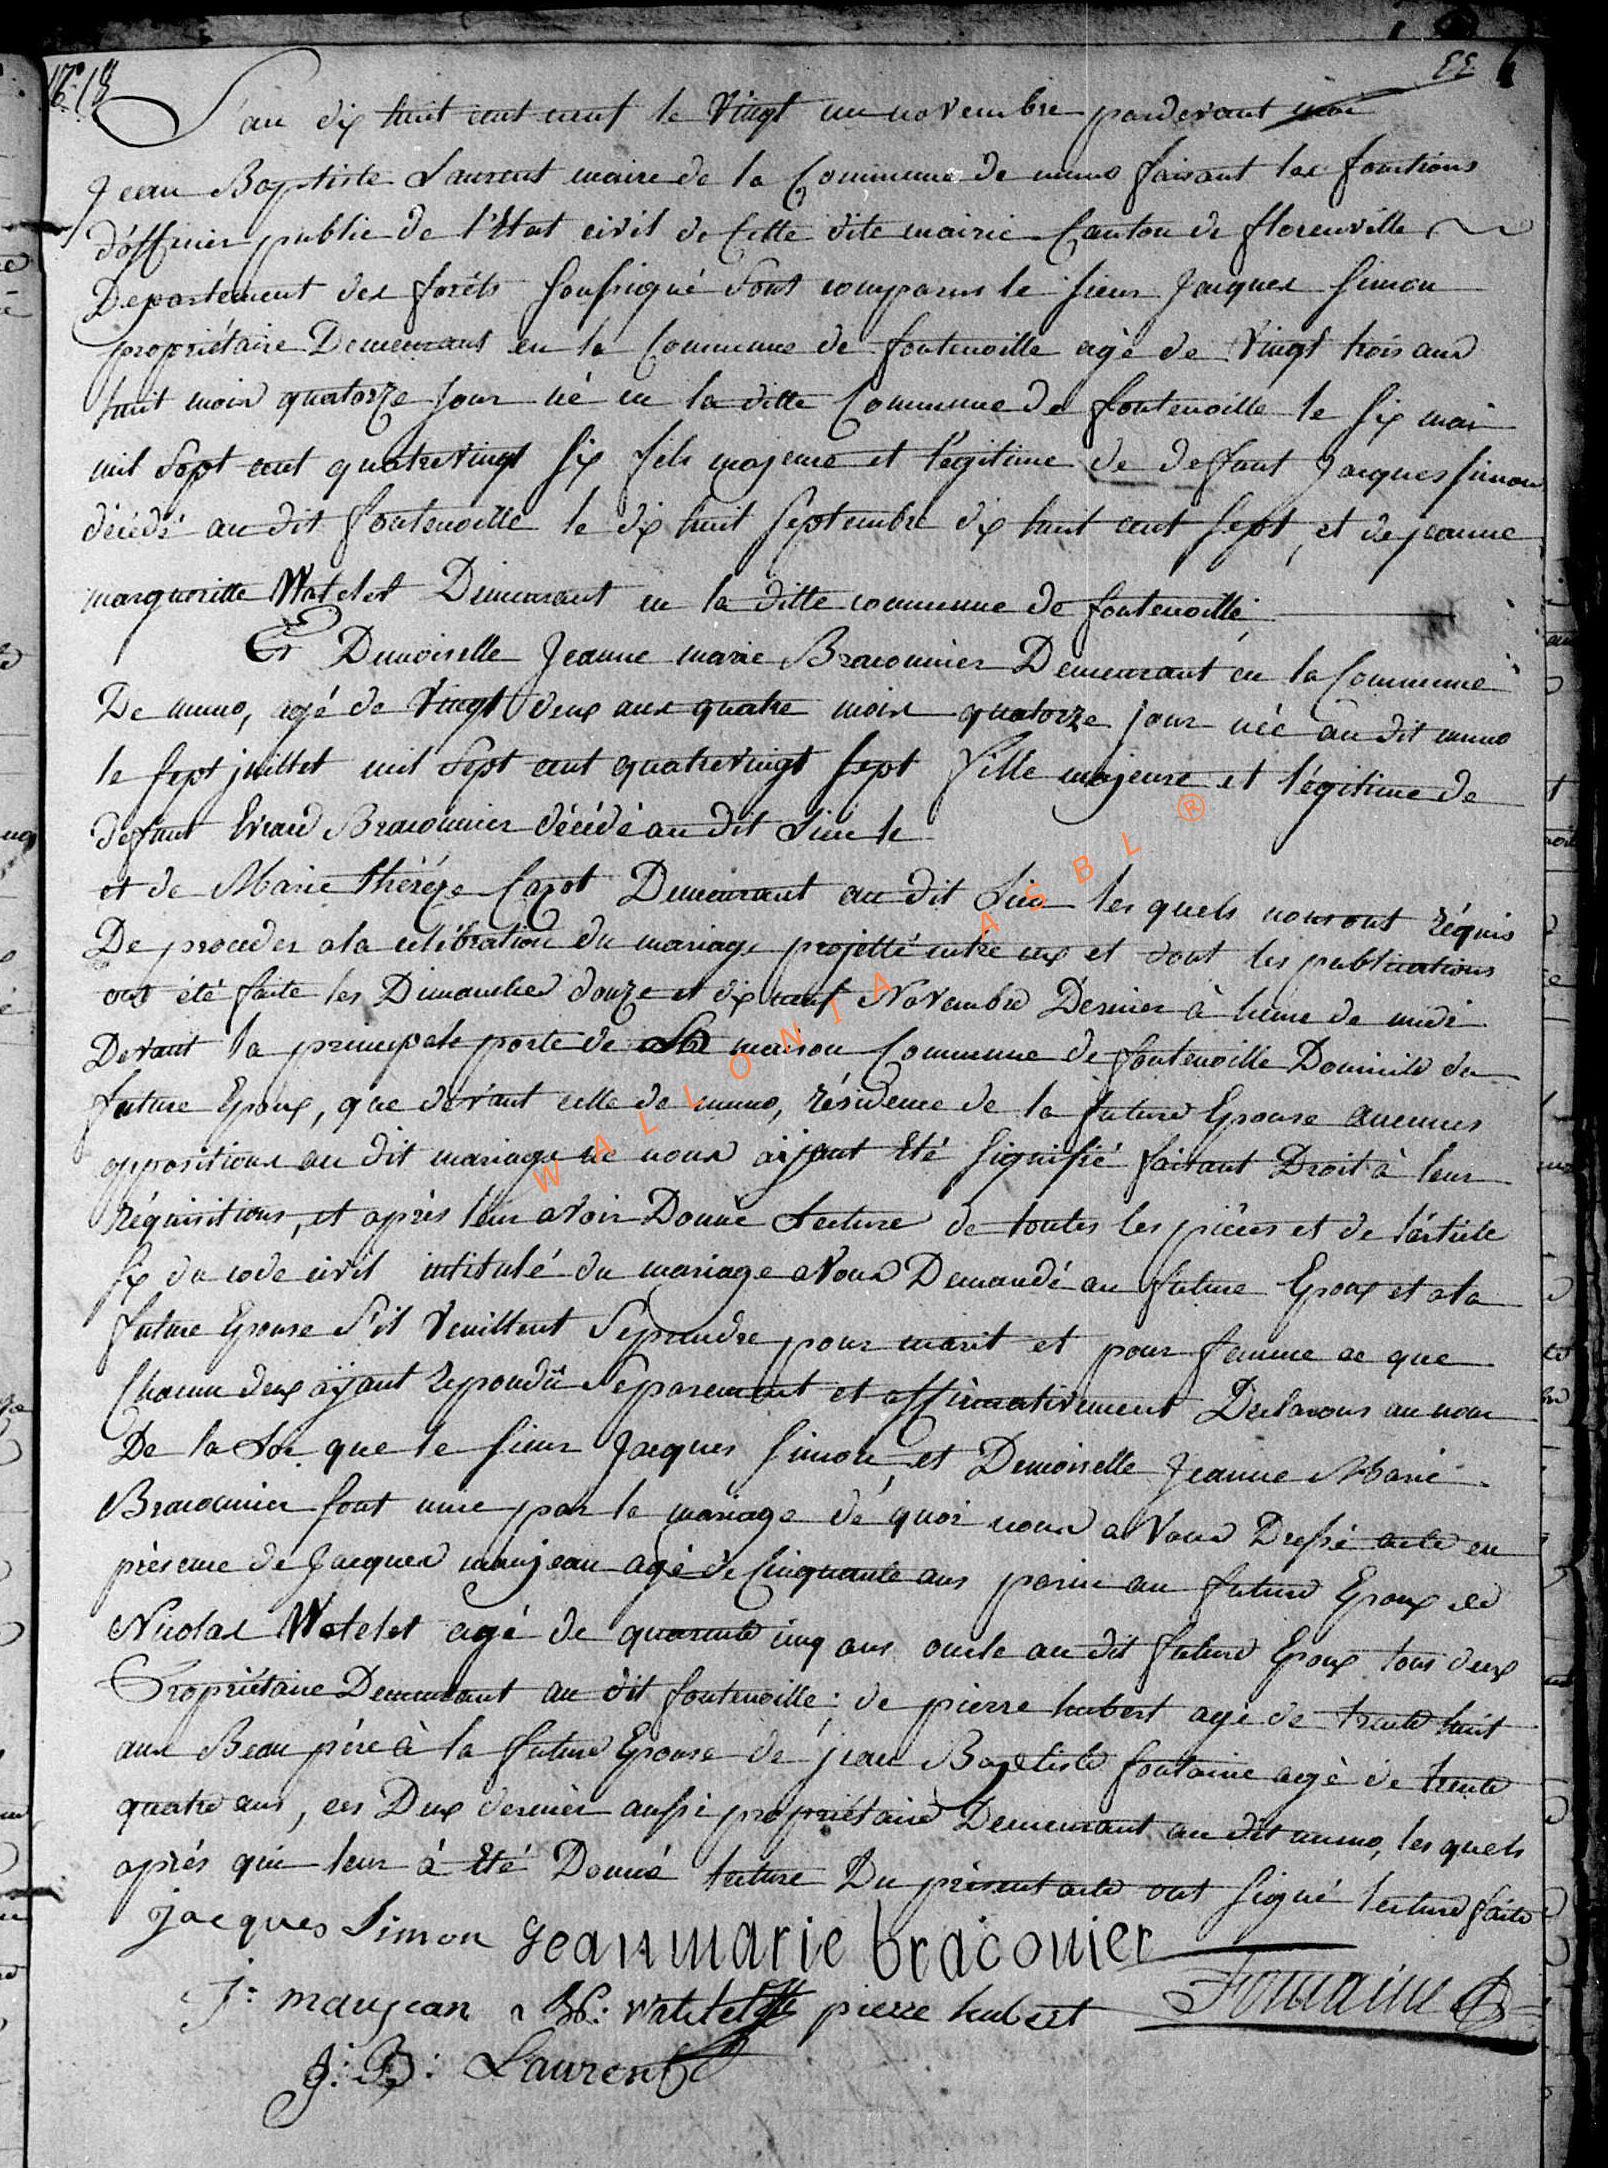 N.° 18
L'an dix huit cent neuf le vingt un novembre pardevant moi
Jean Baptiste Laurent maire de la Commune de muno faisant les fonctions
d'officier public de l'Etat civil de Cette dite mairie Canton de florenville
Departement des forêts Soussigné Sont comparus le sieur Jacques Simon
propriétaire Demeurant en la Commune de fontenoille agé de Vingt trois ans
huit mois quatorze jour né en la ditte Commune de fontenoille le six mai
mil sept cent quatrevingt six fils majeure et légitime de deffant Jacques Simon
décédé au dit fontenoille le dix huit Septembre dix huit cent sept, et de jeanne
margueritte Watelet Demeurant en la ditte commune de fontenoille
Et Demoiselle Jeanne marie Braconnier Demeurant en la Commune
De muno, agé de Vingt deux ans quatre mois quatorze jour née au dit muno
le sept juillet mil sept cent quatrevingt sept fille majeure et légitime de
deffant Evrard Braconnier décédé au dit Lieu le
et de Marie thérèze Cazot Demeurant au dit Lieu les quels nous ont réquis
De proceder a la célébration du mariage projetté entre eux et dont les publications
ont été faite les Dimanches douze et dix neuf Novembre Dernier à heure de midi
Devant la principale porte de la maison Commune de fontenoille Domicile du
future Epoux, que dévant celle de muno, résidence de la future Epouse aucunes
oppositions au dit mariage ne nous aijant Eté signifié faisant Droit à leur
réquisitions, et après leur avoir Donné Lecture de toutes les pièces et de l'article
six du code civil intitulé du mariage avons Demandé au future Epoux et a la
future Epouse S'il veuillent Se prendre pour marit et pour femme ce que
Chacun deux aÿant repondû Séparement et affirmativement Declarons au nom
De la Loi que le sieur Jacques Simon et Demoiselle Jeanne Marie
Braconnier sont unie par le mariage dé quoi nous avons Dressé acte en
présence de Jacques manjean agé de Cinquante ans parin au future Epoux de
Nicolas Watelet agé de quarante cinq ans oncle au dit future Epoux tous deux
Propriétaire Demeurant au dit fontenoille; de pierre hubert agé de trente huit
ans Beau pére à la future Epouse de jean Baptiste fontaine agé de trente
quatre ans, ces Deux dernièr aussi propriétaire Demeurant au dit muno, les quels
après qui leur à Eté Donné lecture Du présent acte ont signé lecture faite
jacques Simon Jeanmarie braconier
J: manjean N: watelet pierre hubert Fontaine
J: B: Laurent
WALLONIA ASBL ®